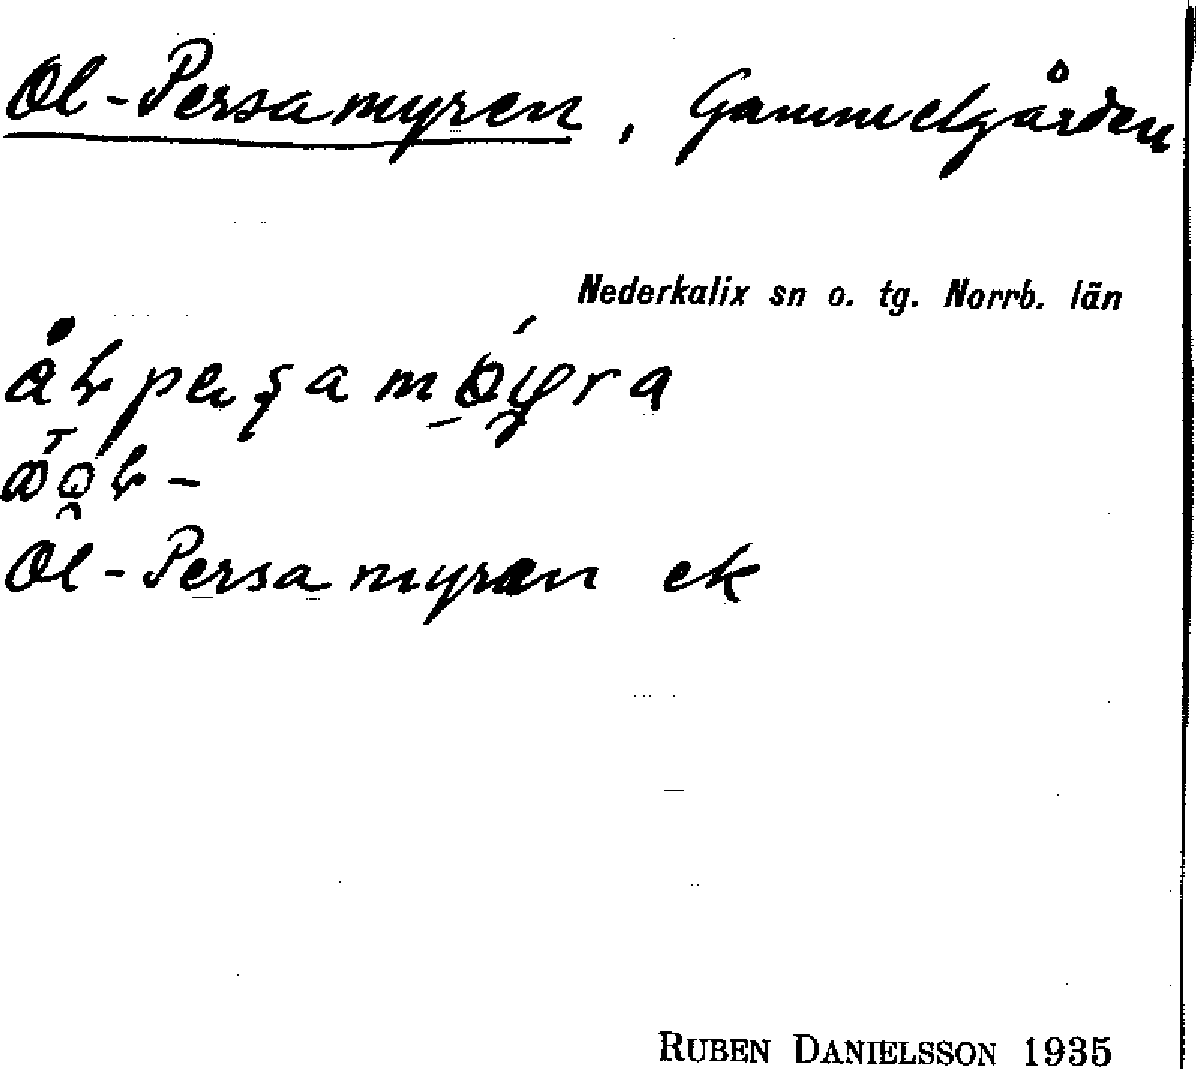 Ol-Persamyren, Gammelgården
Nederkalix sn o. tg. Norrb. län
Ol-Persamyran ek
RUBEN DANIELSSON 1935